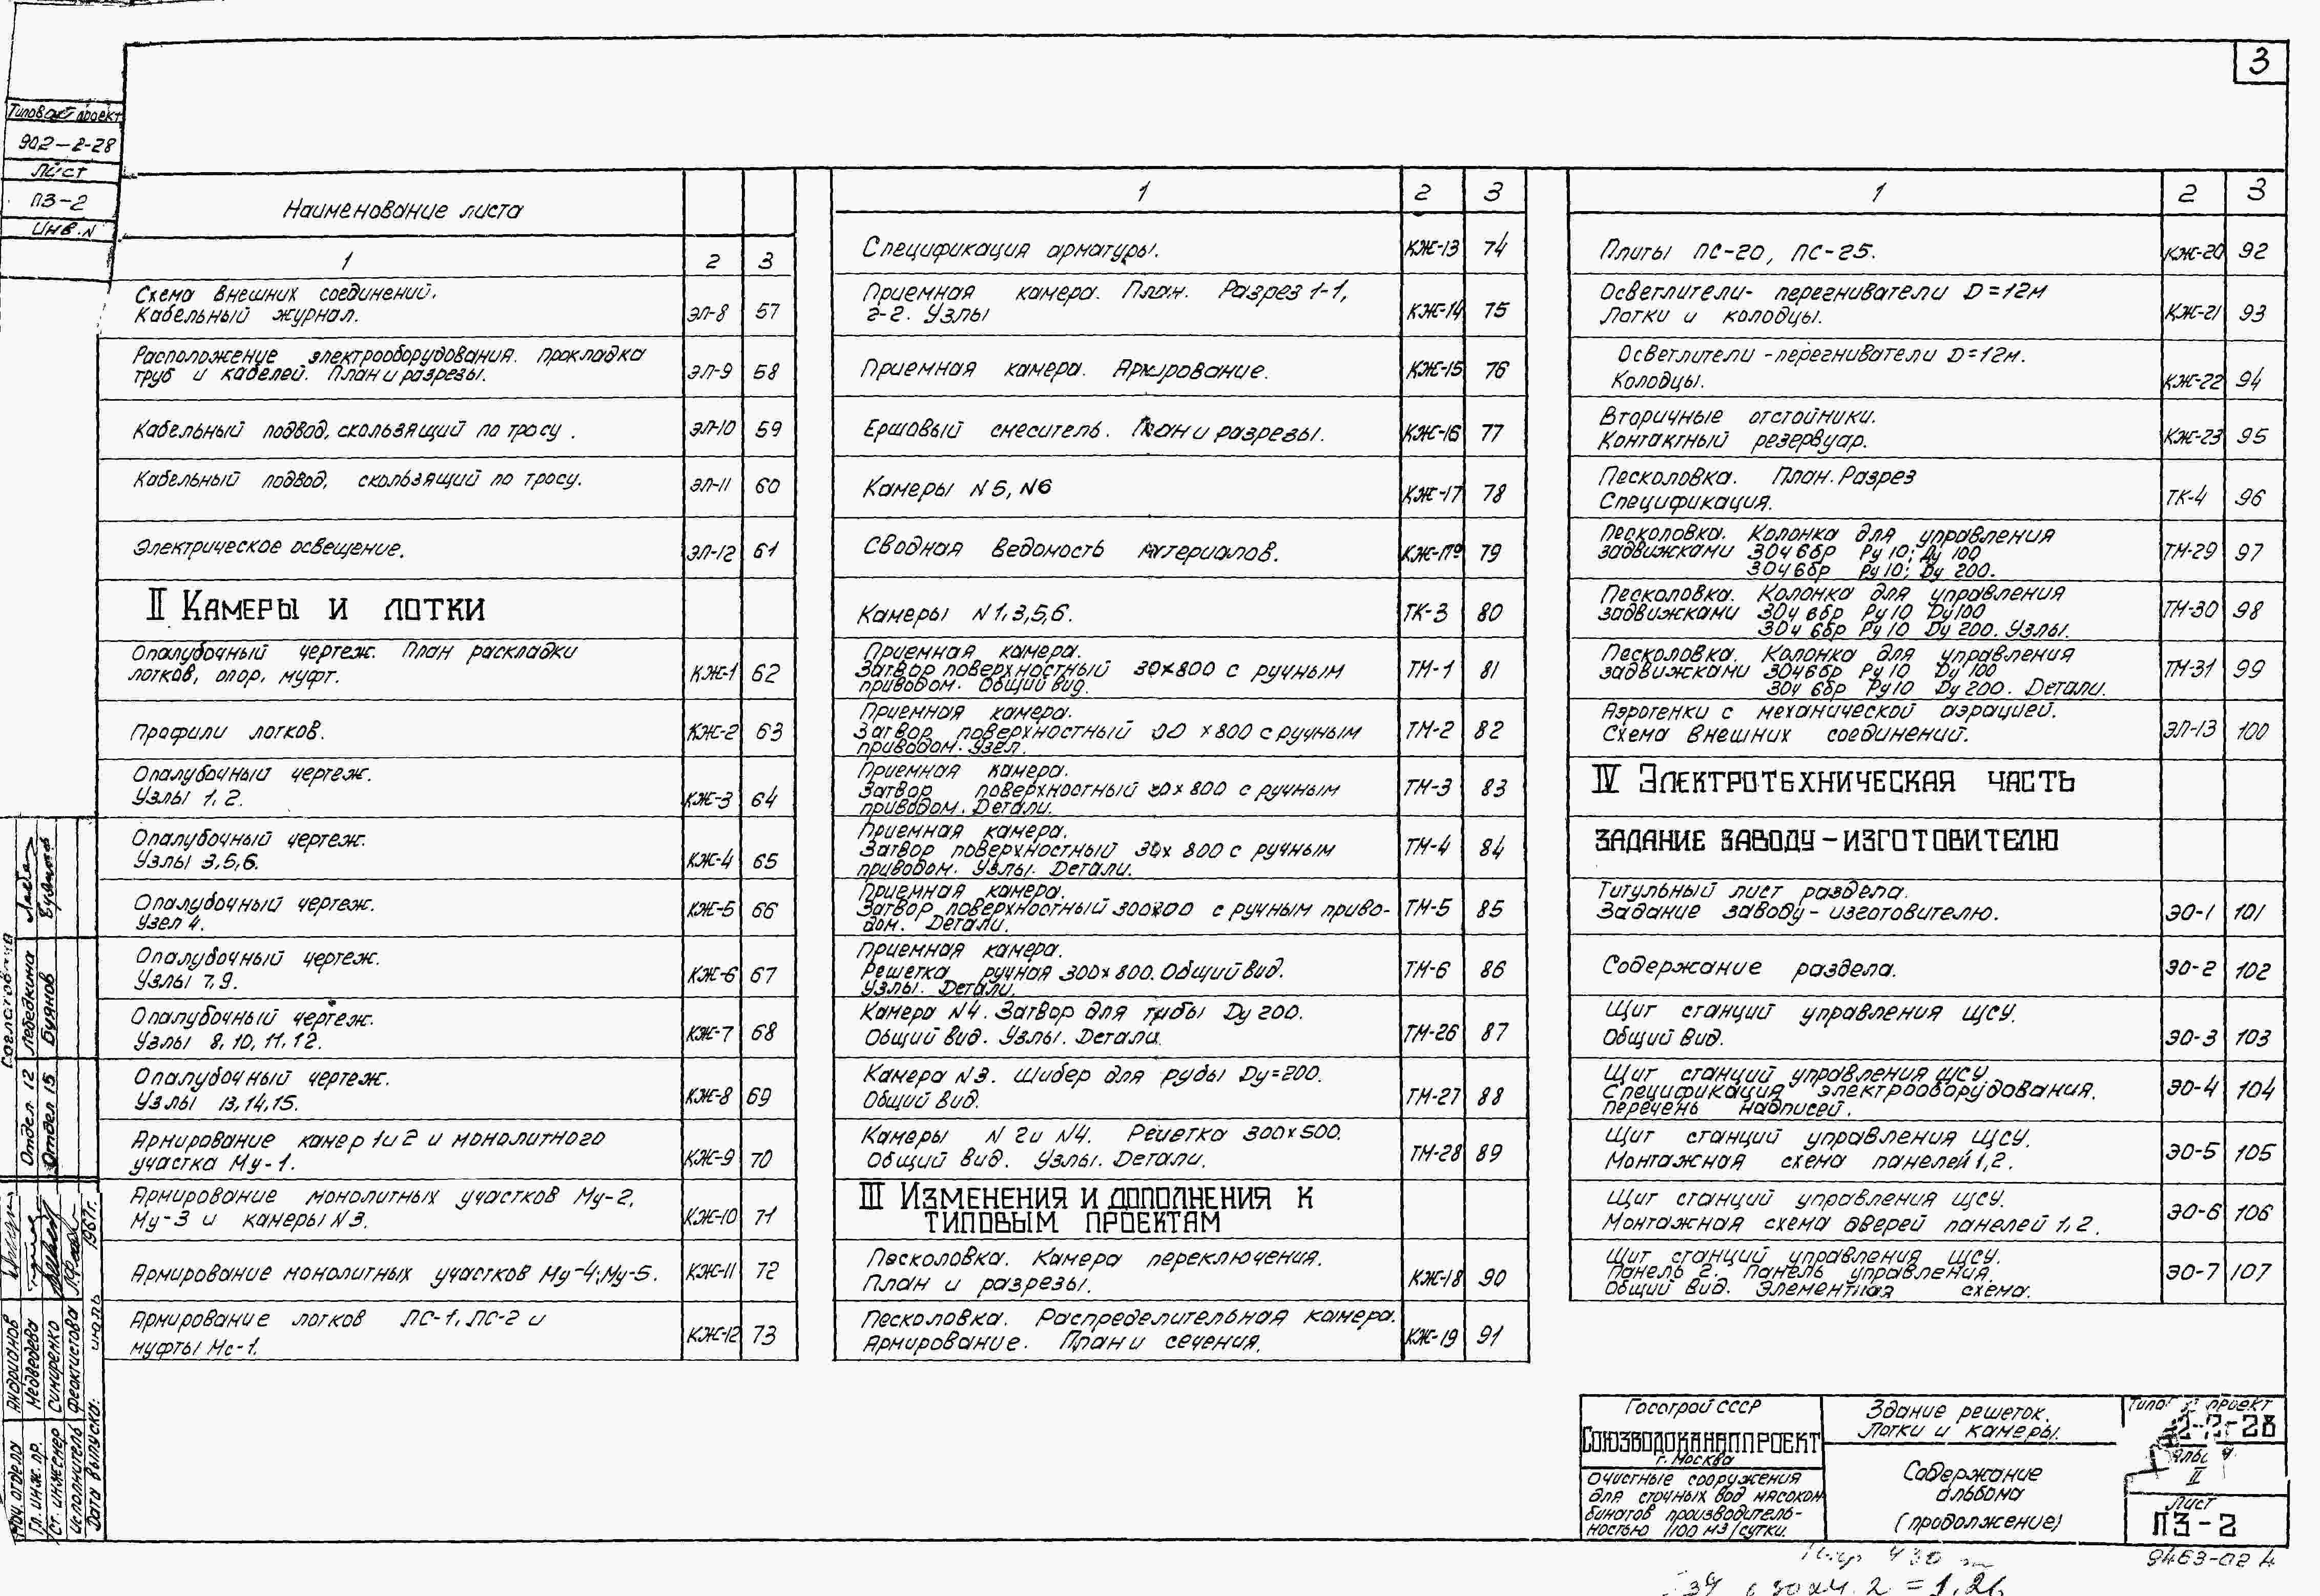 3
Типовой проект
902-2-28
Лист
ПЗ-2
Инв. N
Наименование листа
1 2 3
Схема внешних соединений.
Кабельный журнал. ЭЛ-8 57
Расположение электрооборудования. Прокладка
труб и кабелей. План и разрезы. ЭЛ-9 58
Кабельный подвод, скользящий по тросу. ЭЛ-10 59
Кабельный подвод, скользящий по тросу. ЭЛ-11 60
Электрическое освещение. ЭЛ-12 61
II Камеры и лотки
Опалубочный чертеж. План раскладки
лотков, опор, муфт. КЖ-1 62
Профили лотков. КЖ-2 63
Опалубочный чертеж.
Узлы 1, 2. КЖ-3 64
Опалубочный чертеж.
Узлы 3,5,6. КЖ-4 65
Опалубочный чертеж.
Узел 4. КЖ-5 66
Опалубочный чертеж.
Узлы 7,9. КЖ-6 67
Опалубочный чертеж.
Узлы 8, 10, 11, 12. КЖ-7 68
Опалубочный чертеж.
Узлы 13,14,15. КЖ-8 69
Армирование камер 1 и 2 и монолитного
участка Му-1. КЖ-9 70
Армирование монолитных участков Му-2,
Му-3 и камеры N3. КЖ-10 71
Армирование монолитных участков Му-4; Му-5. КЖ-11 72
Армирование лотков ЛС-1, ЛС-2 и
муфты Мс-1. КЖ-12 73
1 2 3
Спецификация арматуры. КЖ-13 74
Приемная камера. План. Разрез 1-1,
2-2. Узлы КЖ-14 75
Приемная камера. Армирование. КЖ-15 76
Ершовый смеситель. План и разрезы. КЖ-16 77
Камеры N5, N6 КЖ-17 78
Сводная ведомость материалов. 79
Камеры N1,3,5,6. ТК-3 80
Приемная камера.
Затвор поверхностный х800 с ручным
приводом. Общий вид. ТМ-1 81
Приемная камера.
Затвор поверхностный х800 с ручным
приводом. Узел. ТМ-2 82
Приемная камера.
Затвор поверхностный х800 с ручным
приводом. Детали. ТМ-3 83
Приемная камера.
Затвор поверхностный х 800 с ручным
приводом. Узлы. Детали. ТМ-4 84
Приемная камера.
Затвор поверхностный с ручным приво-
дом. Детали. ТМ-5 85
Приемная камера.
Решетка ручная 300х800. Общий вид.
Узлы. Детали. ТМ-6 86
Камера N4. Затвор для трубы Dу 200.
Общий вид. Узлы. Детали. ТМ-26 87
Камера N3. Шибер для рубы Dу=200.
Общий вид. ТМ-27 88
Камеры N 2 и N4. Решетка 300х500.
Общий вид. Узлы. Детали. ТМ-28 89
III Изменения и дополнения к
типовым проектам
Песколовка. Камера переключения.
План и разрезы. КЖ-18 90
Песколовка. Распределительная камера.
Армирование. План и сечения. КЖ-19 91
1 2 3
Плиты ПС-20, ПС-25. КЖ-20 92
Осветлители-перегниватели D=12м
Лотки и колодцы. КЖ-21 93
Осветлители-перегниватели D=12м.
Колодцы. КЖ-22 94
Вторичные отстойники.
Контактный резервуар. КЖ-23 95
Песколовка. План. Разрез
Спецификация. ТК-4 96
Песколовка. Колонка для управления
задвижками 30ч 6бр Ру 10; Dу 100
30ч 6бр Ру 10; Dу 200. ТМ-29 97
Песколовка. Колонка для управления
задвижками 30ч 6бр Ру 10 Dу 100
30ч 6бр Ру 10 Dу 200. Узлы. ТМ-30 98
Песколовка. Колонка для управления
задвижками 30ч 6бр Ру 10 Dу 100
30ч 6бр Ру 10 Dу 200. Детали. ТМ-31 99
Аэротенки с механической аэрацией.
Схема внешних соединений. ЭЛ-13 100
IV Электротехническая часть
Задание заводу-изготовителю
Титульный лист раздела.
Задание заводу-изготовителю. ЭО-1 101
Содержание раздела. ЭО-2 102
Щит станций управления ЩСУ.
Общий вид. ЭО-3 103
Щит станций управления ЩСУ
Спецификация электрооборудования.
Перечень надписей. ЭО-4 104
Щит станций управления ЩСУ.
Монтажная схема панелей 1,2. ЭО-5 105
Щит станций управления ЩСУ.
Монтажная схема дверей панелей 1,2. ЭО-6 106
Щит станций управления ЩСУ.
Панель 2. Панель управления.
Общий вид. Элементная схема. ЭО-7 107
Согласовано
Отдел 12 Лебедкина
Отдел 15 Буянов
Нач. отдела Андрианов
Гл. инж. пр. Медведева
Ст. инженер Симиренко
Исполнитель Феоктистова
Дата выпуска: июль 1967г.
Госстрой СССР
Союзводоканалпроект
г. Москва
Очистные сооружения
для сточных вод мясоком
бинатов производитель-
ностью 1100 м3/сутки.
Здание решеток.
Лотки и камеры.
Содержание
альбома
(продолжение)
проект
2-28
II
Лист
ПЗ-2
9463-02 4